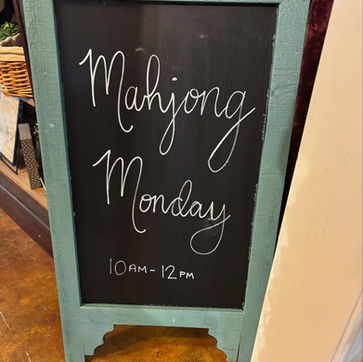 Mahjong
Monday
10AM-12PM